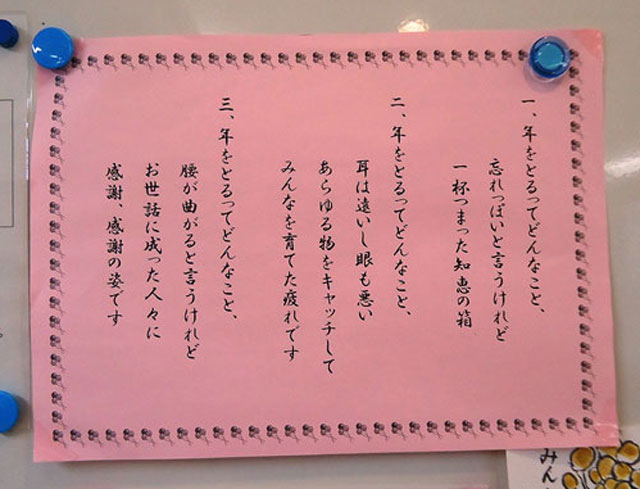 一、年をとるってどんなこと、
忘れっぽいと言うけれど
一杯つまった知恵の箱
二、年をとるってどんなこと、
耳は遠いし眼も悪い
あらゆる物をキャッチして
みんなを育てた疲れです
三、年をとるってどんなこと、
腰が曲がると言うけれど
お世話に成った人々に
感謝、感謝の姿です
みん